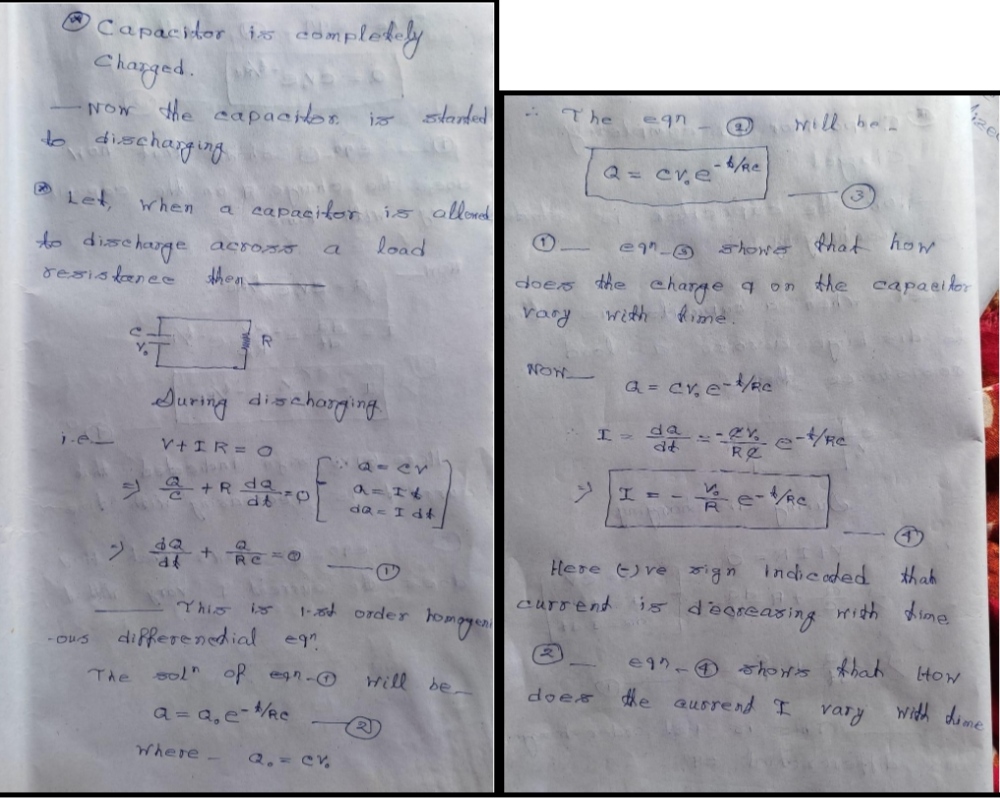 * Capacitor is completely
Charged.
— Now the capacitor is started
to discharging
* Let, when a capacitor is allowed
to discharge across a load
resistance then —
C
V₀
R
During discharging
i.e — V + IR = 0
⇒ Q/C + R dQ/dt = 0 [∵ Q = CV
Q = It
dQ = I dt]
⇒ dQ/dt + Q/RC = 0 — ①
— This is 1-st order homogeni
-ous differenctial eqⁿ.
The solⁿ of eqn-① will be —
Q = Q₀e^(-t/RC) — ②
Where — Q₀ = CV₀
∴ The eqn - ② will be —
Q = CV₀e^(-t/RC) — ③
① — eqn-③ shows that how
does the charge q on the capacitor
vary with time.
Now — Q = CV₀e^(-t/RC)
∴ I = dQ/dt = -CV₀/RC e^(-t/RC)
⇒ I = - V₀/R e^(-t/RC) — ④
Here (-)ve sign indicated that
current is decreasing with time
② — eqn-④ shows that How
does the current I vary with time